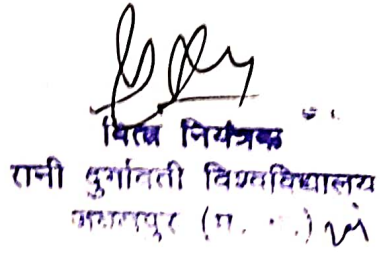 वित्त नियंत्रक
रानी दुर्गावती विश्वविद्यालय
जबलपुर (म.